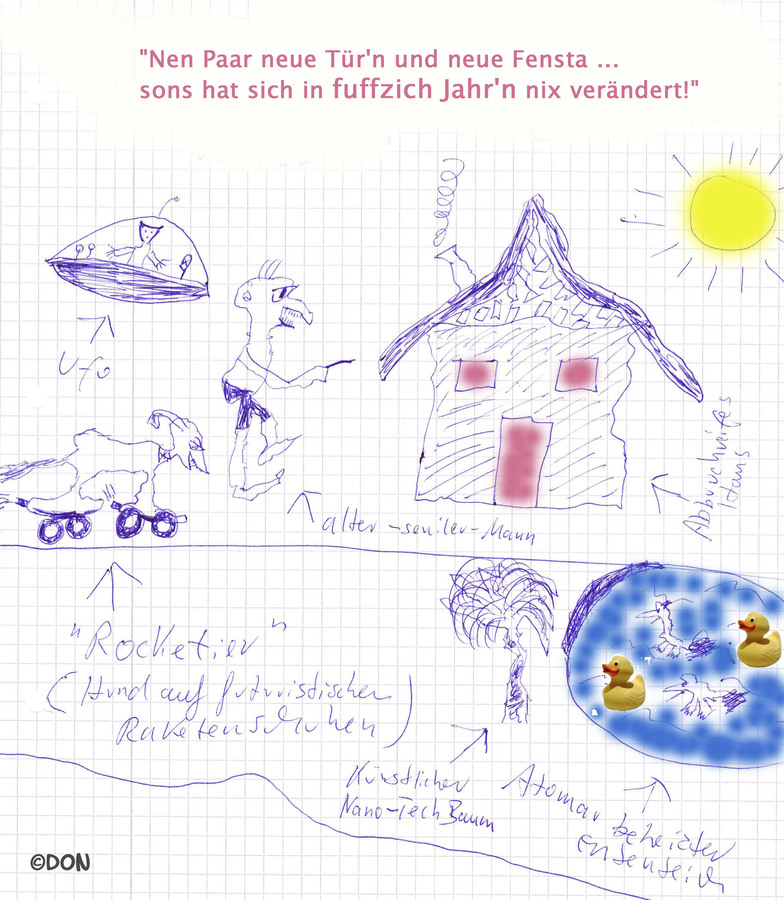 "Nen Paar neue Tür'n und neue Fensta ...
sons hat sich in fuffzich Jahr'n nix verändert!"
Ufo
Abbruchreifes
Haus
alter-seniler-Mann
"Rocketier"
(Hund auf futuristischen
Raketenschuhen)
Künstlicher
Nano-Tech Baum
Atomar beheizter
Ententeich
©DON